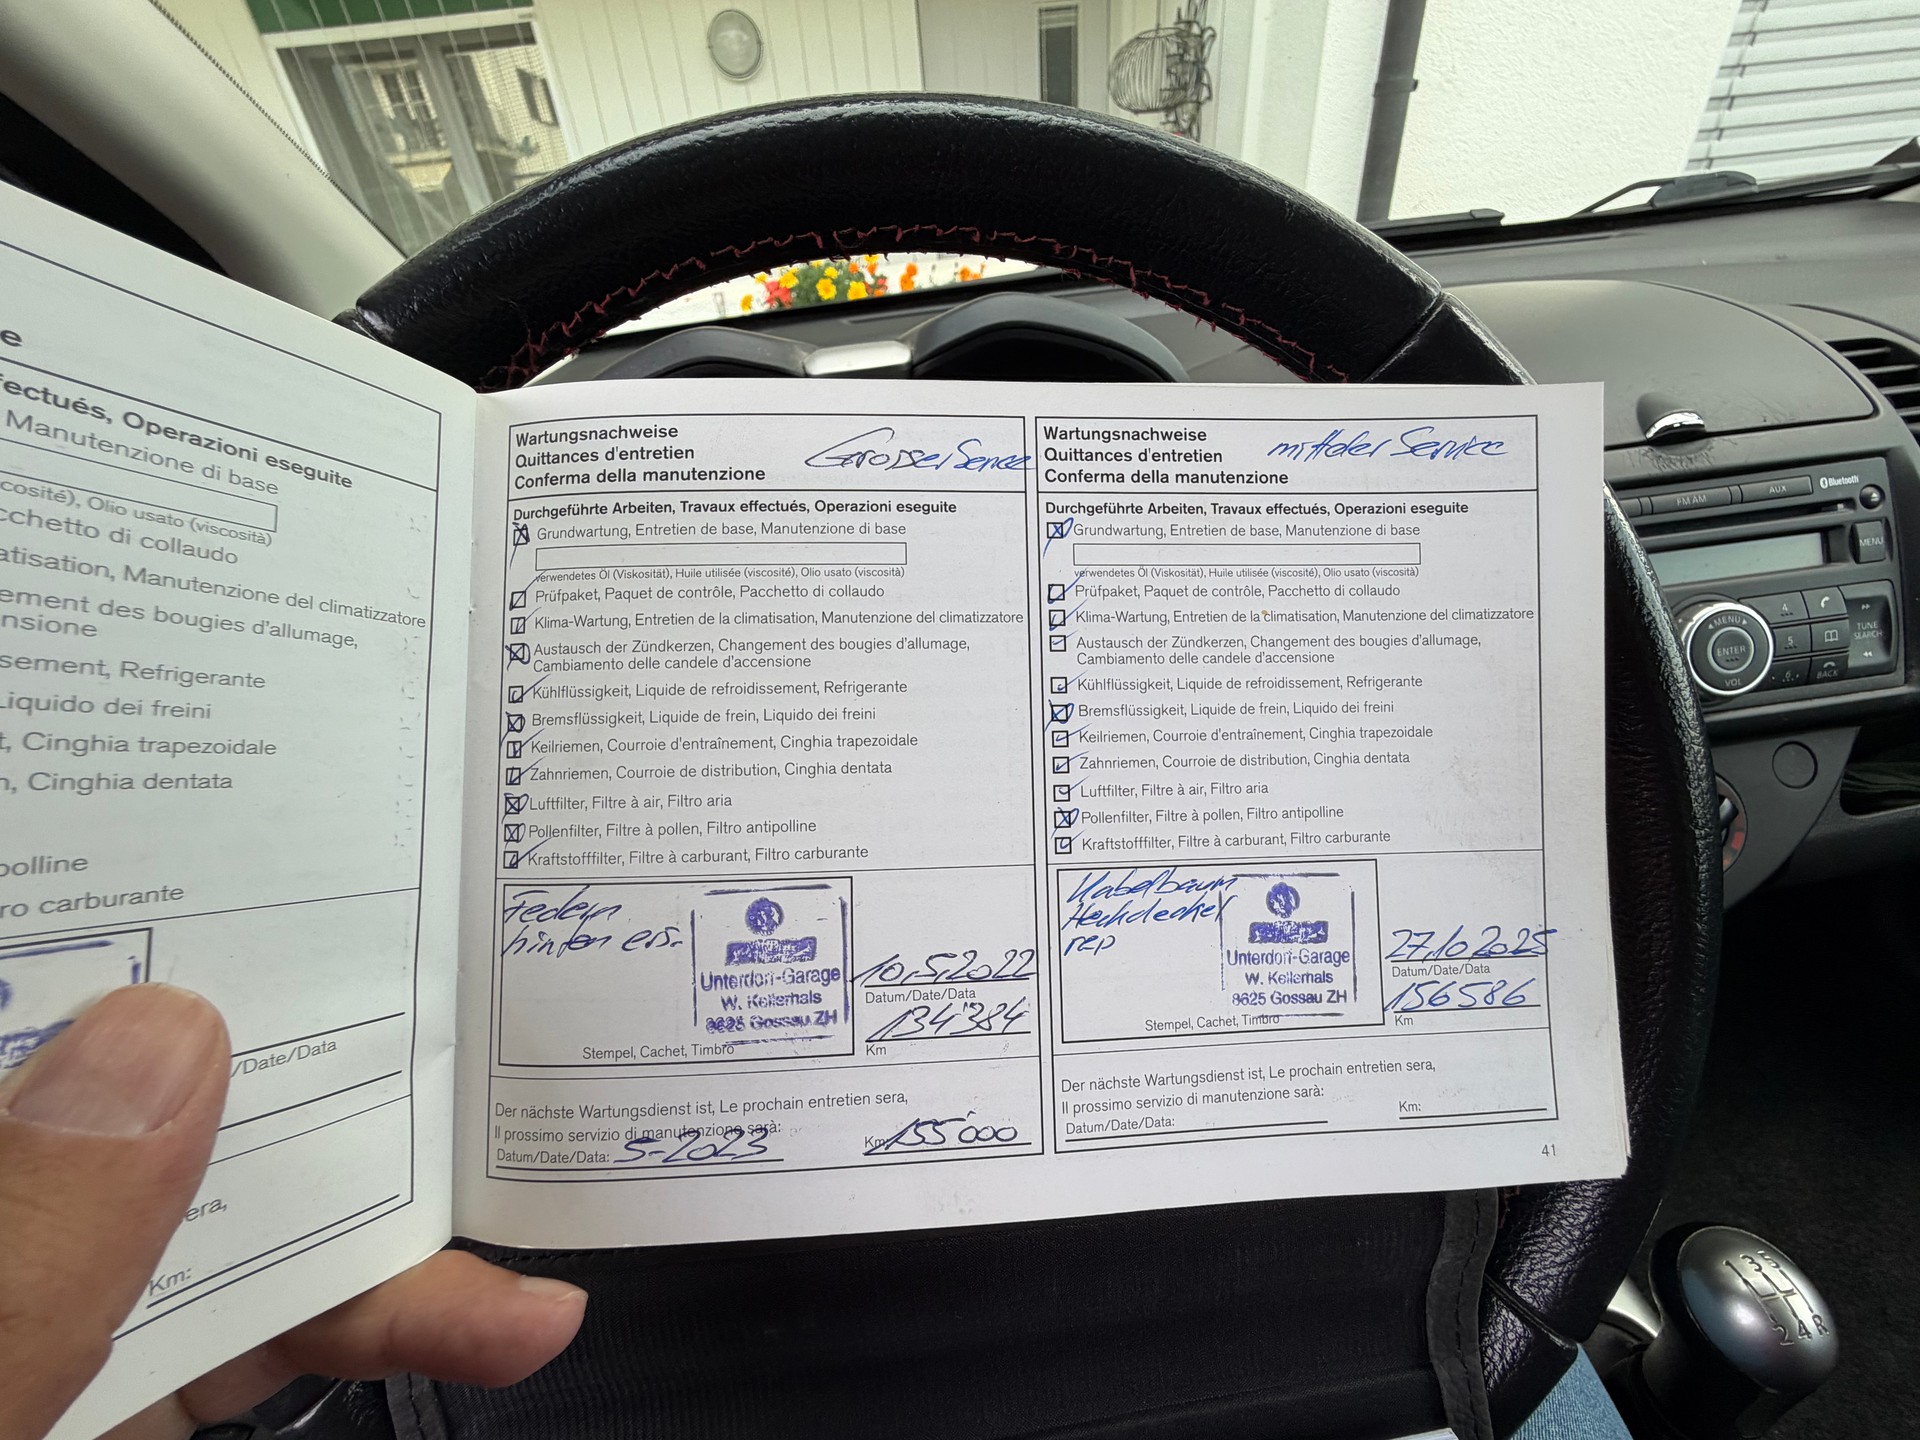 e
fectués, Operazioni eseguite
Manutenzione di base
cosité), Olio usato (viscosità)
cchetto di collaudo
atisation, Manutenzione del climatizzatore
ement des bougies d'allumage,
nsione
sement, Refrigerante
Liquido dei freini
t, Cinghia trapezoidale
n, Cinghia dentata
polline
ro carburante
/Date/Data
era,
Km:
Wartungsnachweise
Quittances d'entretien
Conferma della manutenzione
Grosser Service
Durchgeführte Arbeiten, Travaux effectués, Operazioni eseguite
Grundwartung, Entretien de base, Manutenzione di base
verwendetes Öl (Viskosität), Huile utilisée (viscosité), Olio usato (viscosità)
Prüfpaket, Paquet de contrôle, Pacchetto di collaudo
Klima-Wartung, Entretien de la climatisation, Manutenzione del climatizzatore
Austausch der Zündkerzen, Changement des bougies d'allumage,
Cambiamento delle candele d'accensione
Kühlflüssigkeit, Liquide de refroidissement, Refrigerante
Bremsflüssigkeit, Liquide de frein, Liquido dei freini
Keilriemen, Courroie d'entraînement, Cinghia trapezoidale
Zahnriemen, Courroie de distribution, Cinghia dentata
Luftfilter, Filtre à air, Filtro aria
Pollenfilter, Filtre à pollen, Filtro antipolline
Kraftstofffilter, Filtre à carburant, Filtro carburante
Federn
hinten ers.
Unterdorf-Garage
W. Kellerhals
8625 Gossau ZH
Stempel, Cachet, Timbro
10.5.2022
Datum/Date/Data
134'384
Km
Der nächste Wartungsdienst ist, Le prochain entretien sera,
Il prossimo servizio di manutenzione sarà:
Datum/Date/Data: 5-2023
Km: 155'000
Wartungsnachweise
Quittances d'entretien
Conferma della manutenzione
mittlerer Service
Durchgeführte Arbeiten, Travaux effectués, Operazioni eseguite
Grundwartung, Entretien de base, Manutenzione di base
verwendetes Öl (Viskosität), Huile utilisée (viscosité), Olio usato (viscosità)
Prüfpaket, Paquet de contrôle, Pacchetto di collaudo
Klima-Wartung, Entretien de la climatisation, Manutenzione del climatizzatore
Austausch der Zündkerzen, Changement des bougies d'allumage,
Cambiamento delle candele d'accensione
Kühlflüssigkeit, Liquide de refroidissement, Refrigerante
Bremsflüssigkeit, Liquide de frein, Liquido dei freini
Keilriemen, Courroie d'entraînement, Cinghia trapezoidale
Zahnriemen, Courroie de distribution, Cinghia dentata
Luftfilter, Filtre à air, Filtro aria
Pollenfilter, Filtre à pollen, Filtro antipolline
Kraftstofffilter, Filtre à carburant, Filtro carburante
Kabelbaum
Heckdeckel
rep
Unterdorf-Garage
W. Kellerhals
8625 Gossau ZH
Stempel, Cachet, Timbro
27.10.2025
Datum/Date/Data
156586
Km
Der nächste Wartungsdienst ist, Le prochain entretien sera,
Il prossimo servizio di manutenzione sarà:
Datum/Date/Data:
Km:
41
FM AM
AUX
Bluetooth
MENU
MENU
ENTER
VOL
4
5
6
TUNE
SEARCH
BACK
1 3 5
2 4 R